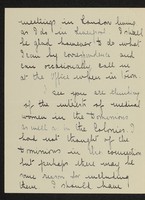 meetings in London living
as I do in Liverpool. I shall
be glad however to do what
I can by correspondence and
can occasionally call in
at the Office when in town
I see you are thinking
of the interest of medical
women in the Commons
as well as in the Colonies. I
had not thought of the
Commons in this connection
but perhaps there may be
some reason for including
them. I should have